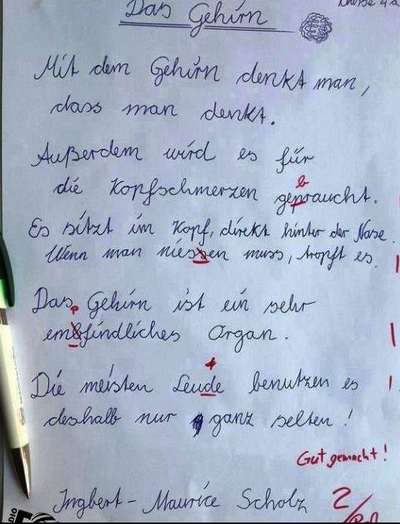 Das Gehirn
Mit dem Gehirn denkt man,
dass man denkt.
Außerdem wird es für
b
die Kopfschmerzen gepraucht.
Es sitzt im Kopf, direkt hinter der Nase.
Wenn man niessen muss, tropft es.
Das Gehirn ist ein sehr
p
embfindliches Organ.
t
Die meisten Leude benutzen es
deshalb nur ganz selten!
Gut gemacht!
Ingbert-Maurice Scholz
2